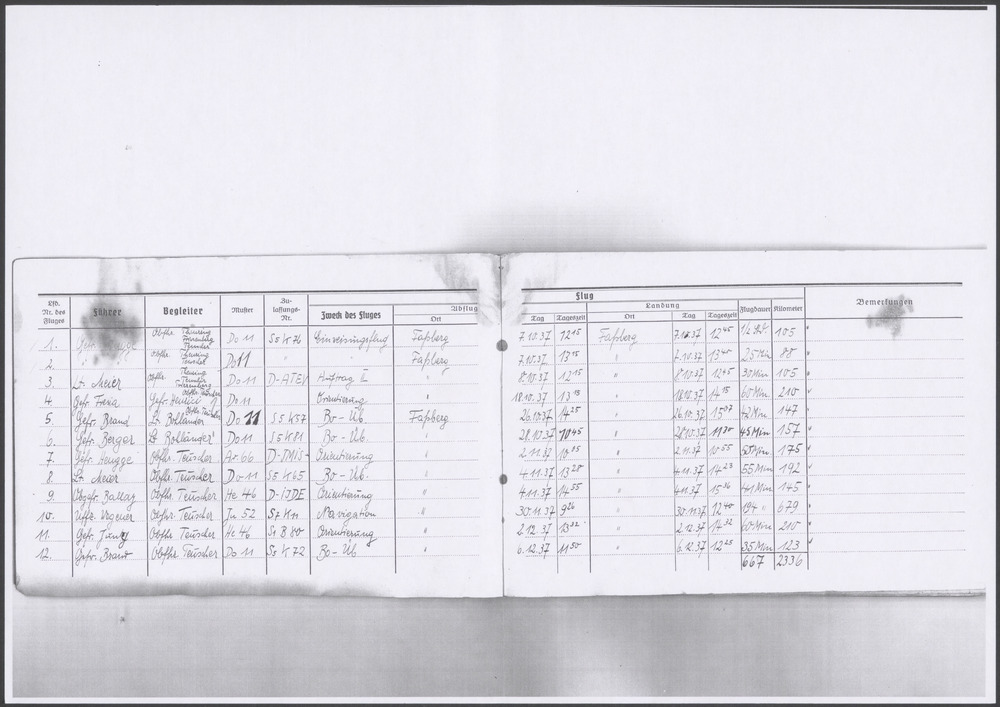 Flug
Lfd. Nr. des Fluges Führer Begleiter Muster Zu-lassungs-Nr. Zweck des Fluges Abflug Ort Tag Tageszeit Landung Ort Tag Tageszeit Flugdauer Kilometer Bemerkungen
1. Gefr. Obfhr. Do 11 S5 K76 Einweisungsflug Faßberg 7.10.37 12 15 Faßberg 7.10.37 12 45 1/2 105 "
2. " Obfhr. Do 11 " Faßberg 7.10.37 13 15 " 7.10.37 13 40 25 Min 88 "
3. Lt. Meier Obfhr. Do 11 D-ATEV Auftrag II " 8.10.37 12 15 " 8.10.37 12 45 30 Min 105 "
4. Gefr. Do 11 Orientierung " 18.10.37 13 15 " 18.10.37 14 15 60 Min 210 "
5. Gefr. Brand Lt. Bohländer Obfhr. Teuscher Do 11 S5 K57 Bo-Üb. Faßberg 26.10.37 14 25 26.10.37 15 07 42 Min 147 "
6. Gefr. Berger Lt Bohländer Do 11 S5 K81 Bo-Üb. " 28.10.37 10 45 " 28.10.37 11 30 45 Min 157 "
7. Gefr. Obfhr. Teuscher Ar 66 Orientierung " 2.11.37 10 05 " 2.11.37 10 55 50 Min 175 "
8. Lt. Meier Obfhr. Teuscher Do 11 S5 K65 Bo-Üb. " 4.11.37 13 28 " 4.11.37 14 23 55 Min 192 "
9. Obgefr. Obfhr. Teuscher He 46 D-IJDE Orientierung " 4.11.37 14 55 " 4.11.37 15 36 41 Min 145 "
10. Uffz. Obfhr. Teuscher Ju 52 Navigation " 30.11.37 9 26 " 30.11.37 12 40 194 " 679 "
11. Gefr. Jung Obfhr Teuscher He 46 B 80 Orientierung " 2.12.37 13 32 " 2.12.37 14 32 60 Min 210 "
12. Gefr. Brand Obfhr Teuscher Do 11 S5 K72 Bo-Üb " 6.12.37 11 50 " 6.12.37 12 25 35 Min 123 "
667 2336